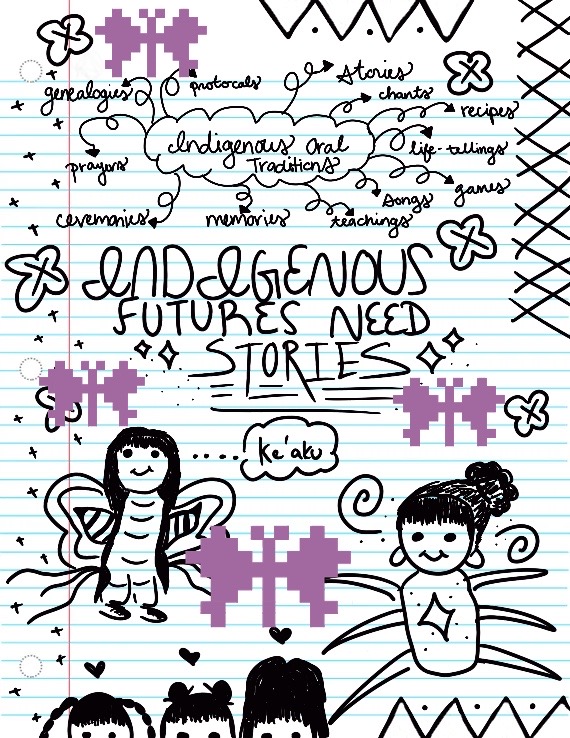 genealogies
protocals
Stories
chants
recipes
Indigenous Oral
Traditions
life-tellings
prayers
games
songs
ceremonies
memories
teachings
INDIGENOUS
FUTURES NEED
STORIES
ke'aku